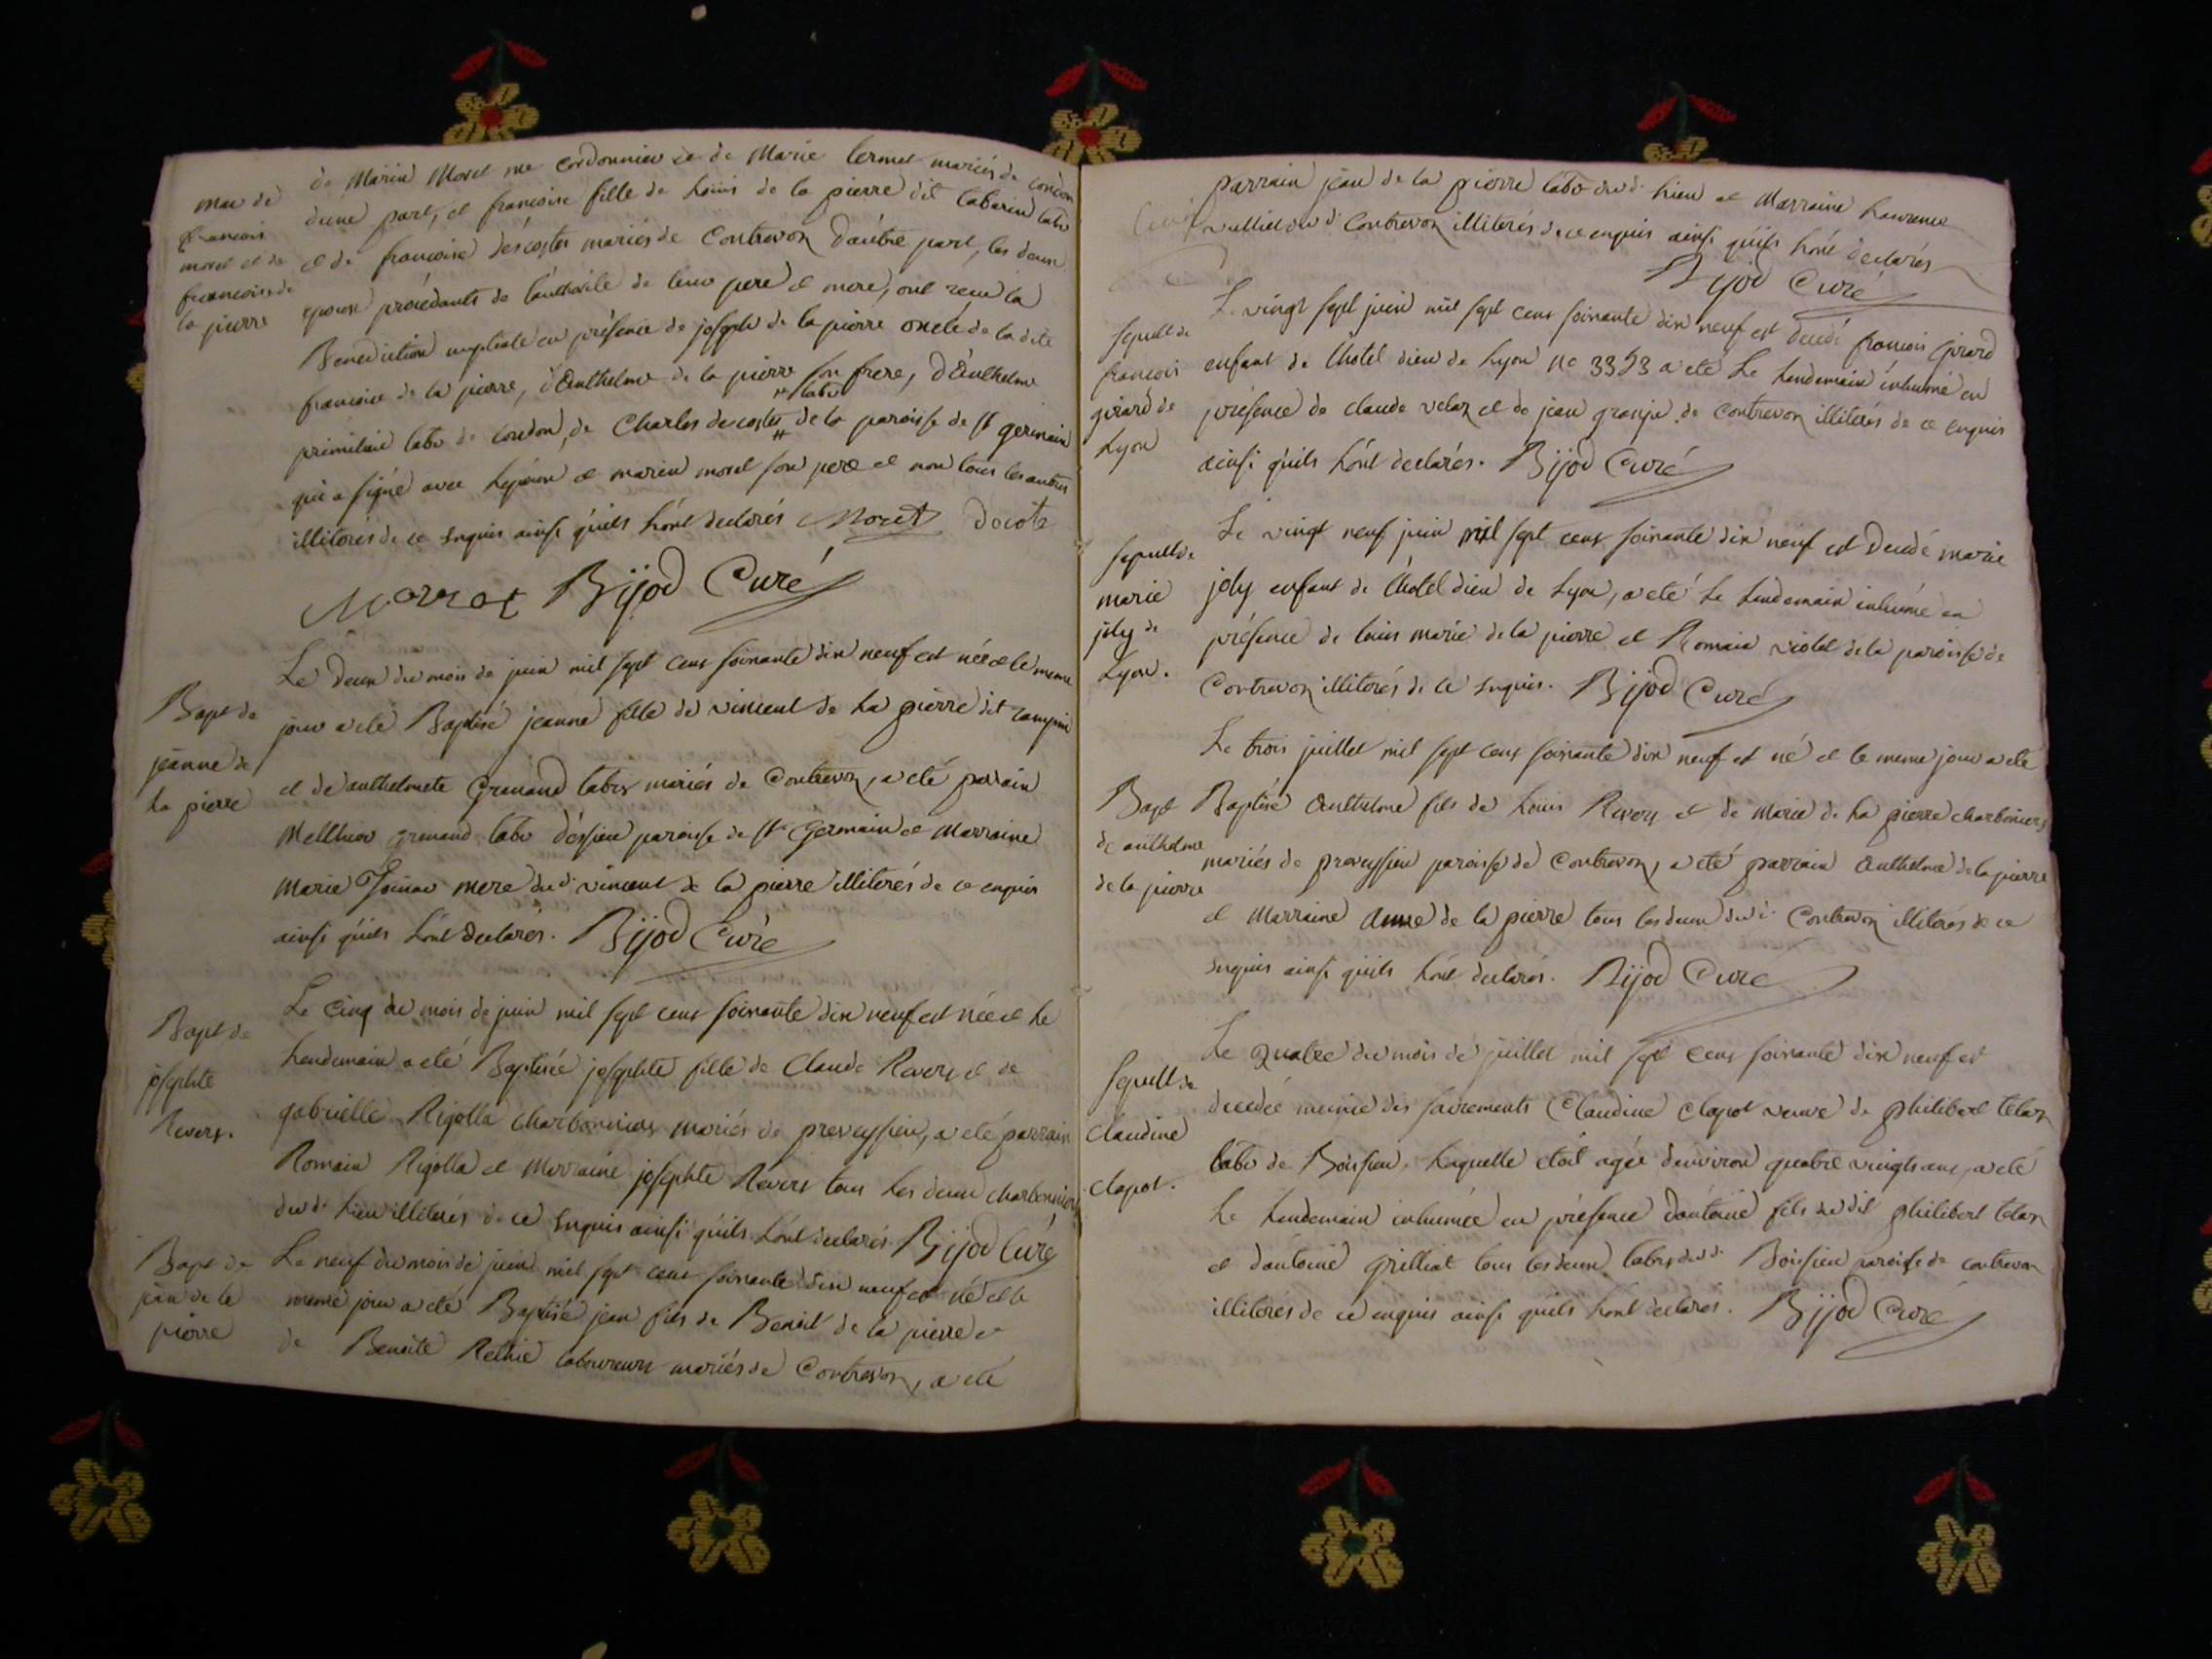 mar de
françois
morel et de
françoise de
la pierre
de Marin Morel me cordonnier et de Marie mariés de condon
d'une part, et françoise fille de Loüis de la pierre dit labarin labr
et de françoise descostes mariés de Contrevoz d'autre part, les deux
epoux procédants de l'authorité de leur pere et mere, ont reçu la
Benediction nuptiale en présence de joseph de la pierre oncle de la dite
françoise de la pierre, d'Anthelme de la pierre son frere, d'Anthelme
primilain labr de condon, de Charles descostes # labr # de la paroisse de st germain
qui a signé avec l'epoux et marin morel son pere et non tous les autres
illiterés de ce enquis ainsi qu'ils l'ont declarés Moret Decote
Morret Bijod Curé
Bapt de
jeanne de
la pierre
Le deux du mois de juin mil sept cent soixante dix neuf est née et le meme
jour a eté Baptisé jeanne fille de vincent de la pierre dit
et de anthelmete Grenand labrs mariés de Contrevoz, a eté parrain
Melthior grenand labr d'essieu paroisse de st Germain et Marraine
Marie mere dud. vincent de la pierre illiterés de ce enquis
ainsi qu'ils l'ont declarés. Bijod Curé
Bapt de
josephte
Revers.
Le Cinq du mois de juin mil sept cent soixante dix neuf est née et le
lendemain a eté Baptisée josephte fille de Claude Revers et de
gabrielle Rigolla charbonniers mariés de preveyssieu, a eté parrain
Romain Rigolla et Marraine josephte Revers tous les deux charbonniers
dud. lieu illiterés de ce enquis ainsi qu'ils l'ont declarés. Bijod Curé
Bapt de
jean de la
pierre
Le neuf du mois de juin mil sept cent soixante dix neuf est né et le
meme jour a eté Baptisé jean fils de Benoit de la pierre et
de Benoite laboureurs mariés de Contrevoz, a eté
parrain jean de la pierre labr dud. lieu et Marraine Laurence
vulliet dud. Contrevoz illiterés de ce enquis ainsi qu'ils l'ont declarés
Bijod Curé
sepult de
francois
girard de
Lyon
Le vingt sept juin mil sept cent soixante dix neuf est decedé francois Girard
enfant de l'hotel dieu de Lyon no 3353 a eté le lendemain inhumé en
présence de claude velaz et de jean granje de Contrevoz illiterés de ce enquis
ainsi qu'ils l'ont declarés. Bijod Curé
sepult de
marie
joly de
Lyon.
Le vingt neuf juin mil sept cent soixante dix neuf est Decedé marie
joly enfant de l'hotel dieu de Lyon, a eté le lendemain inhumé en
présence de louis marie de la pierre et Romain violet de la paroisse de
Contrevoz illiterés de ce enquis. Bijod Curé
Bapt
de anthelme
de la pierre
Le trois juillet mil sept cent soixante dix neuf est né et le meme jour a eté
Baptisé Anthelme fils de Loüis Revers et de Marie de la pierre charboniers
mariés de preveyssieu paroisse de Contrevoz, a eté parrain Anthelme de la pierre
et Marraine Anne de la pierre tous les deux dud. Contrevoz illiterés de ce
enquis ainsi qu'ils l'ont declarés. Bijod Curé
sepult de
Claudine
clapot.
Le Quatre du mois de juillet mil sept cent soixante dix neuf est
decedée munie des sacrements Claudine clapot veuve de philibert
labr de Boissieu, laquelle étoit agée d'environ quatre vingts ans, a eté
le lendemain inhumée en présence d'antoine fils dudit philibert
et d'antoine grilliat tous les deux labrs dud. Boissieu paroisse de contrevoz
illiterés de ce enquis ainsi qu'ils l'ont declarés. Bijod Curé